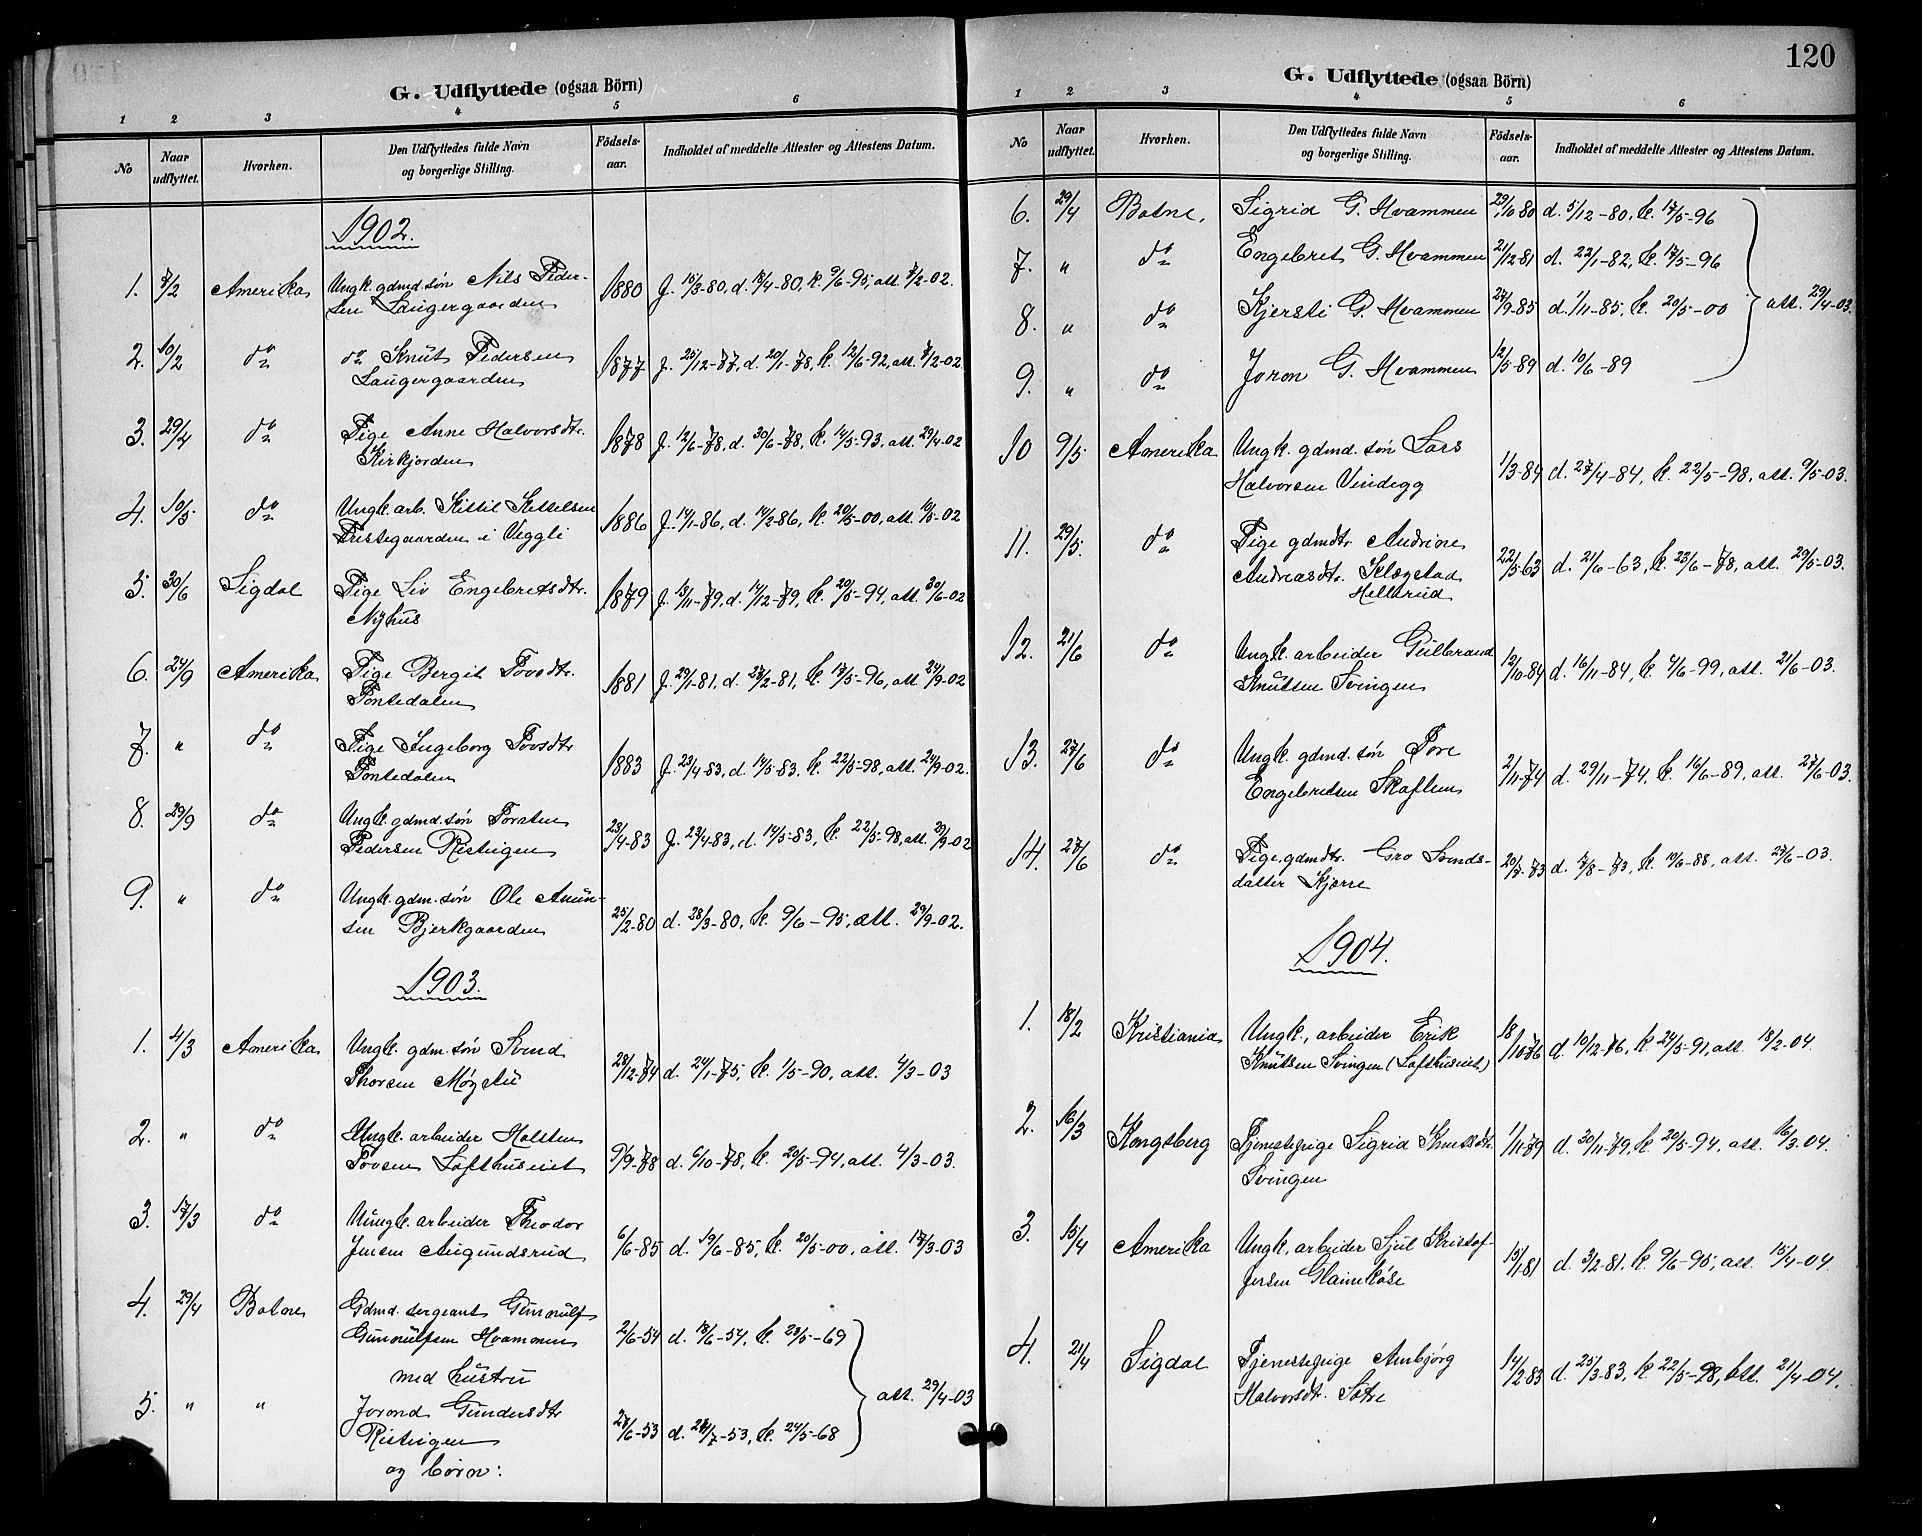 G. Udflyttede (ogsaa Börn)
1 2 3 4 5 6
No Naar udflyttet. Hvorhen. Den Udflyttedes fulde Navn og borgerlige Stilling. Födsels-aar. Indholdet af meddelte Attester og Attestens Datum.
1902.
1. 7/2 Amerika Ungk. gdmd. søn Nils Peder- 1880 f. 15/3-80, d. 18/4-80, k. 9/6-95, att. 7/2-02.
sen Laugergaarden
2. 10/2 do do Knut Pedersen 1877 f. 25/12-77, d. 20/1-78, k. 12/6-92, att. 7/2-02
Laugergaarden
3. 29/4 do Pige Anne Halvorsdtr. 1878 f. 12/6-78, d. 30/6-78, k. 14/5-93, att. 29/4-02
Kirkjorden
4. 10/5 do Ungk. arb. Kittil Kittilsen 1886 f. 14/1-86, d. 14/2-86, k. 20/5-00, att. 10/5-02
Prestegaarden i Veggli
5. 30/6 Sigdal Pige Liv Engebretsdtr. 1879 f. 13/11-79, d. 14/12-79, k. 20/5-94, att. 30/6-02
Nyhus
6. 24/9 Amerika Pige Bergit Tovsdtr. 1881 f. 29/1-81, d. 27/2-81, k. 17/5-96, att. 24/9-02
Tontedalen
7. " do Pige Ingeborg Tovsdtr 1883 f. 23/4-83, d. 14/5-83, k. 22/5-98, att. 24/9-02.
Tontedalen
8. 29/9 do Ungk. gdmd. søn Torsten 23/4-83 f. 23/4-83, d. 14/5-83, k. 22/5-98, att. 29/9-02
Pedersen Risteigen
9. " do Ungk. gdm. søn Ole Amun- 25/2-80 d. 28/3-80, k. 9/6-95, att. 29/9-02.
sen Bjerkgaarden
1903.
1. 4/3 Amerika Ungk. gdm. søn Svend 28/12-74 d. 24/1-75, k. 1/5-90, att. 4/3-03
Thorsen Møgstu
2. " do Ungk. arbeider Halsten 9/9-78 d. 6/10-78, k. 20/5-94, att. 4/3-03.
Tovsen Lofthuseiet
3. 17/3 do Ungk. arbeider Theodor 6/6-85 d. 19/6-85, k. 20/5-00, att. 17/3-03
Jensen Augundsrud
4. 29/4 Botne Gdmd. sergeant Gunnulf
Gunnulfsen Hvammen 2/6-54 d. 18/6-54, k. 23/5-69
med hustru
5. " " Jorond Gundersdtr 27/6-53 d. 24/7-53, k. 24/5-68 att. 29/4-03
Risteigen
og börn:
120
G. Udflyttede (ogsaa Börn)
1 2 3 4 5 6
No Naar udflyttet. Hvorhen. Den Udflyttedes fulde Navn og borgerlige Stilling. Födsels-aar. Indholdet af meddelte Attester og Attestens Datum.
6. 29/4 Botne, Sigrid G. Hvammen 29/10 80 d. 5/12-80, k. 17/5-96
7. " do Engebret G. Hvammen 21/12 81 d. 22/1-82, k. 17/5-96
8. " do Kjersti G. Hvammen 27/9-85 d. 1/11-85, k. 20/5-00 att. 29/4-03.
9. " do Joron G. Hvammen 12/5-89 d. 10/6-89
10 9/5 Amerika Ungk. gdmd. søn Lars 1/3-84 d. 27/4-84, k. 22/5-98, att. 9/5-03.
Halvorsen Vindegg
11. 29/5. do Pige gdmdtr. Andrine 22/5-63 d. 21/6-63, k. 23/6-78, att. 29/5-03.
Andreasdtr. Klægstad
Hellerud
12. 21/6 do Ungk. arbeider Gulbrand 12/10-84 d. 16/11-84, k. 4/6-99, att. 21/6-03.
Knutsen Svingen
13. 27/6 do Ungk. gdmd. søn Tore 2/11-74 d. 29/11-74, k. 16/6-89, att. 27/6-03.
Engebretsen Skaflem
14. 27/6 do Pige, gdmdtr. Gro Svends- 20/7-73 d. 7/8-73, k. 10/6-88, att. 27/6-03.
datter Kjerre
1904.
1. 18/2 Kristiania Ungk., arbeider Erik 18/10 76 d. 10/12-76, k 24/5-91, att. 18/2-04.
Knutsen Svingen (Lofthuseiet)
2. 16/3 Kongsberg Tjenestepige Sigrid Knutsdtr. 1/11-79 d. 30/11-79, k. 20/5-94, att. 16/3-04.
Svingen
3. 15/4 Amerika Ungk. arbeider Sjul Kristof- 15/1 81 d. 3/2-81. k. 9/6-95, att. 15/4-04
fersen Glaimkåse
4. 21/4 Sigdal Tjenestepige Anbjørg 14/2 83 d. 25/3-83, k. 22/5-98, att. 21/4-04.
Halvorsdtr. Sætre